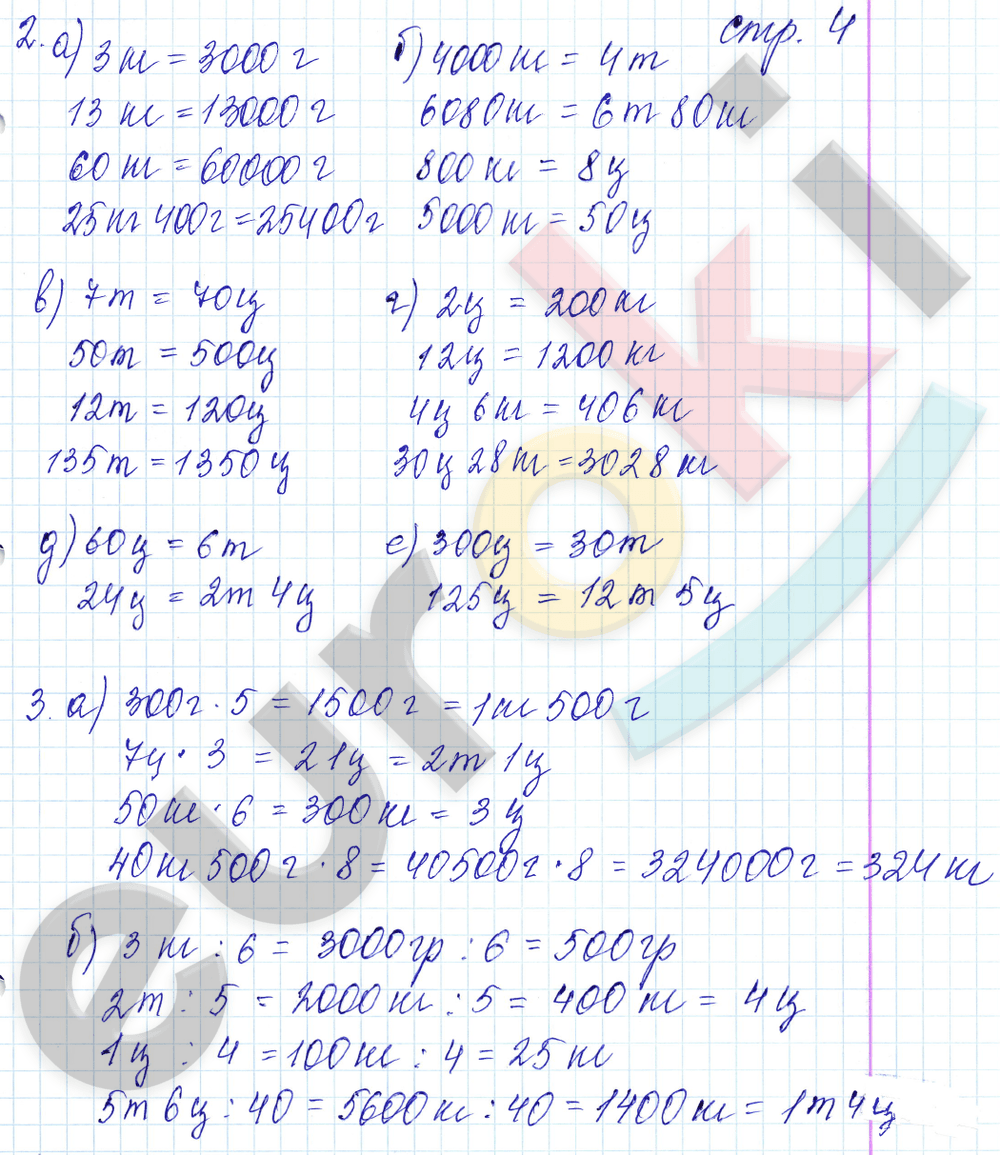 стр. 4
2. а) 3 кг = 3000 г б) 4000 кг = 4 т
13 кг = 13000 г 6080 кг = 6 т 80 кг
60 кг = 60000 г 800 кг = 8 ц
25 кг 400 г = 25400 г 5000 кг = 50 ц
в) 7 т = 70 ц г) 2 ц = 200 кг
50 т = 500 ц 12 ц = 1200 кг
12 т = 120 ц 4 ц 6 кг = 406 кг
135 т = 1350 ц 30 ц 28 кг = 3028 кг
д) 60 ц = 6 т е) 300 ц = 30 т
24 ц = 2 т 4 ц 125 ц = 12 т 5 ц
3. а) 300 г · 5 = 1500 г = 1 кг 500 г
7 ц · 3 = 21 ц = 2 т 1 ц
50 кг · 6 = 300 кг = 3 ц
40 кг 500 г · 8 = 40500 г · 8 = 324000 г = 324 кг
б) 3 кг : 6 = 3000 гр : 6 = 500 гр
2 т : 5 = 2000 кг : 5 = 400 кг = 4 ц
1 ц : 4 = 100 кг : 4 = 25 кг
5 т 6 ц : 40 = 5600 кг : 40 = 1400 кг = 1 т 4 ц
euroki